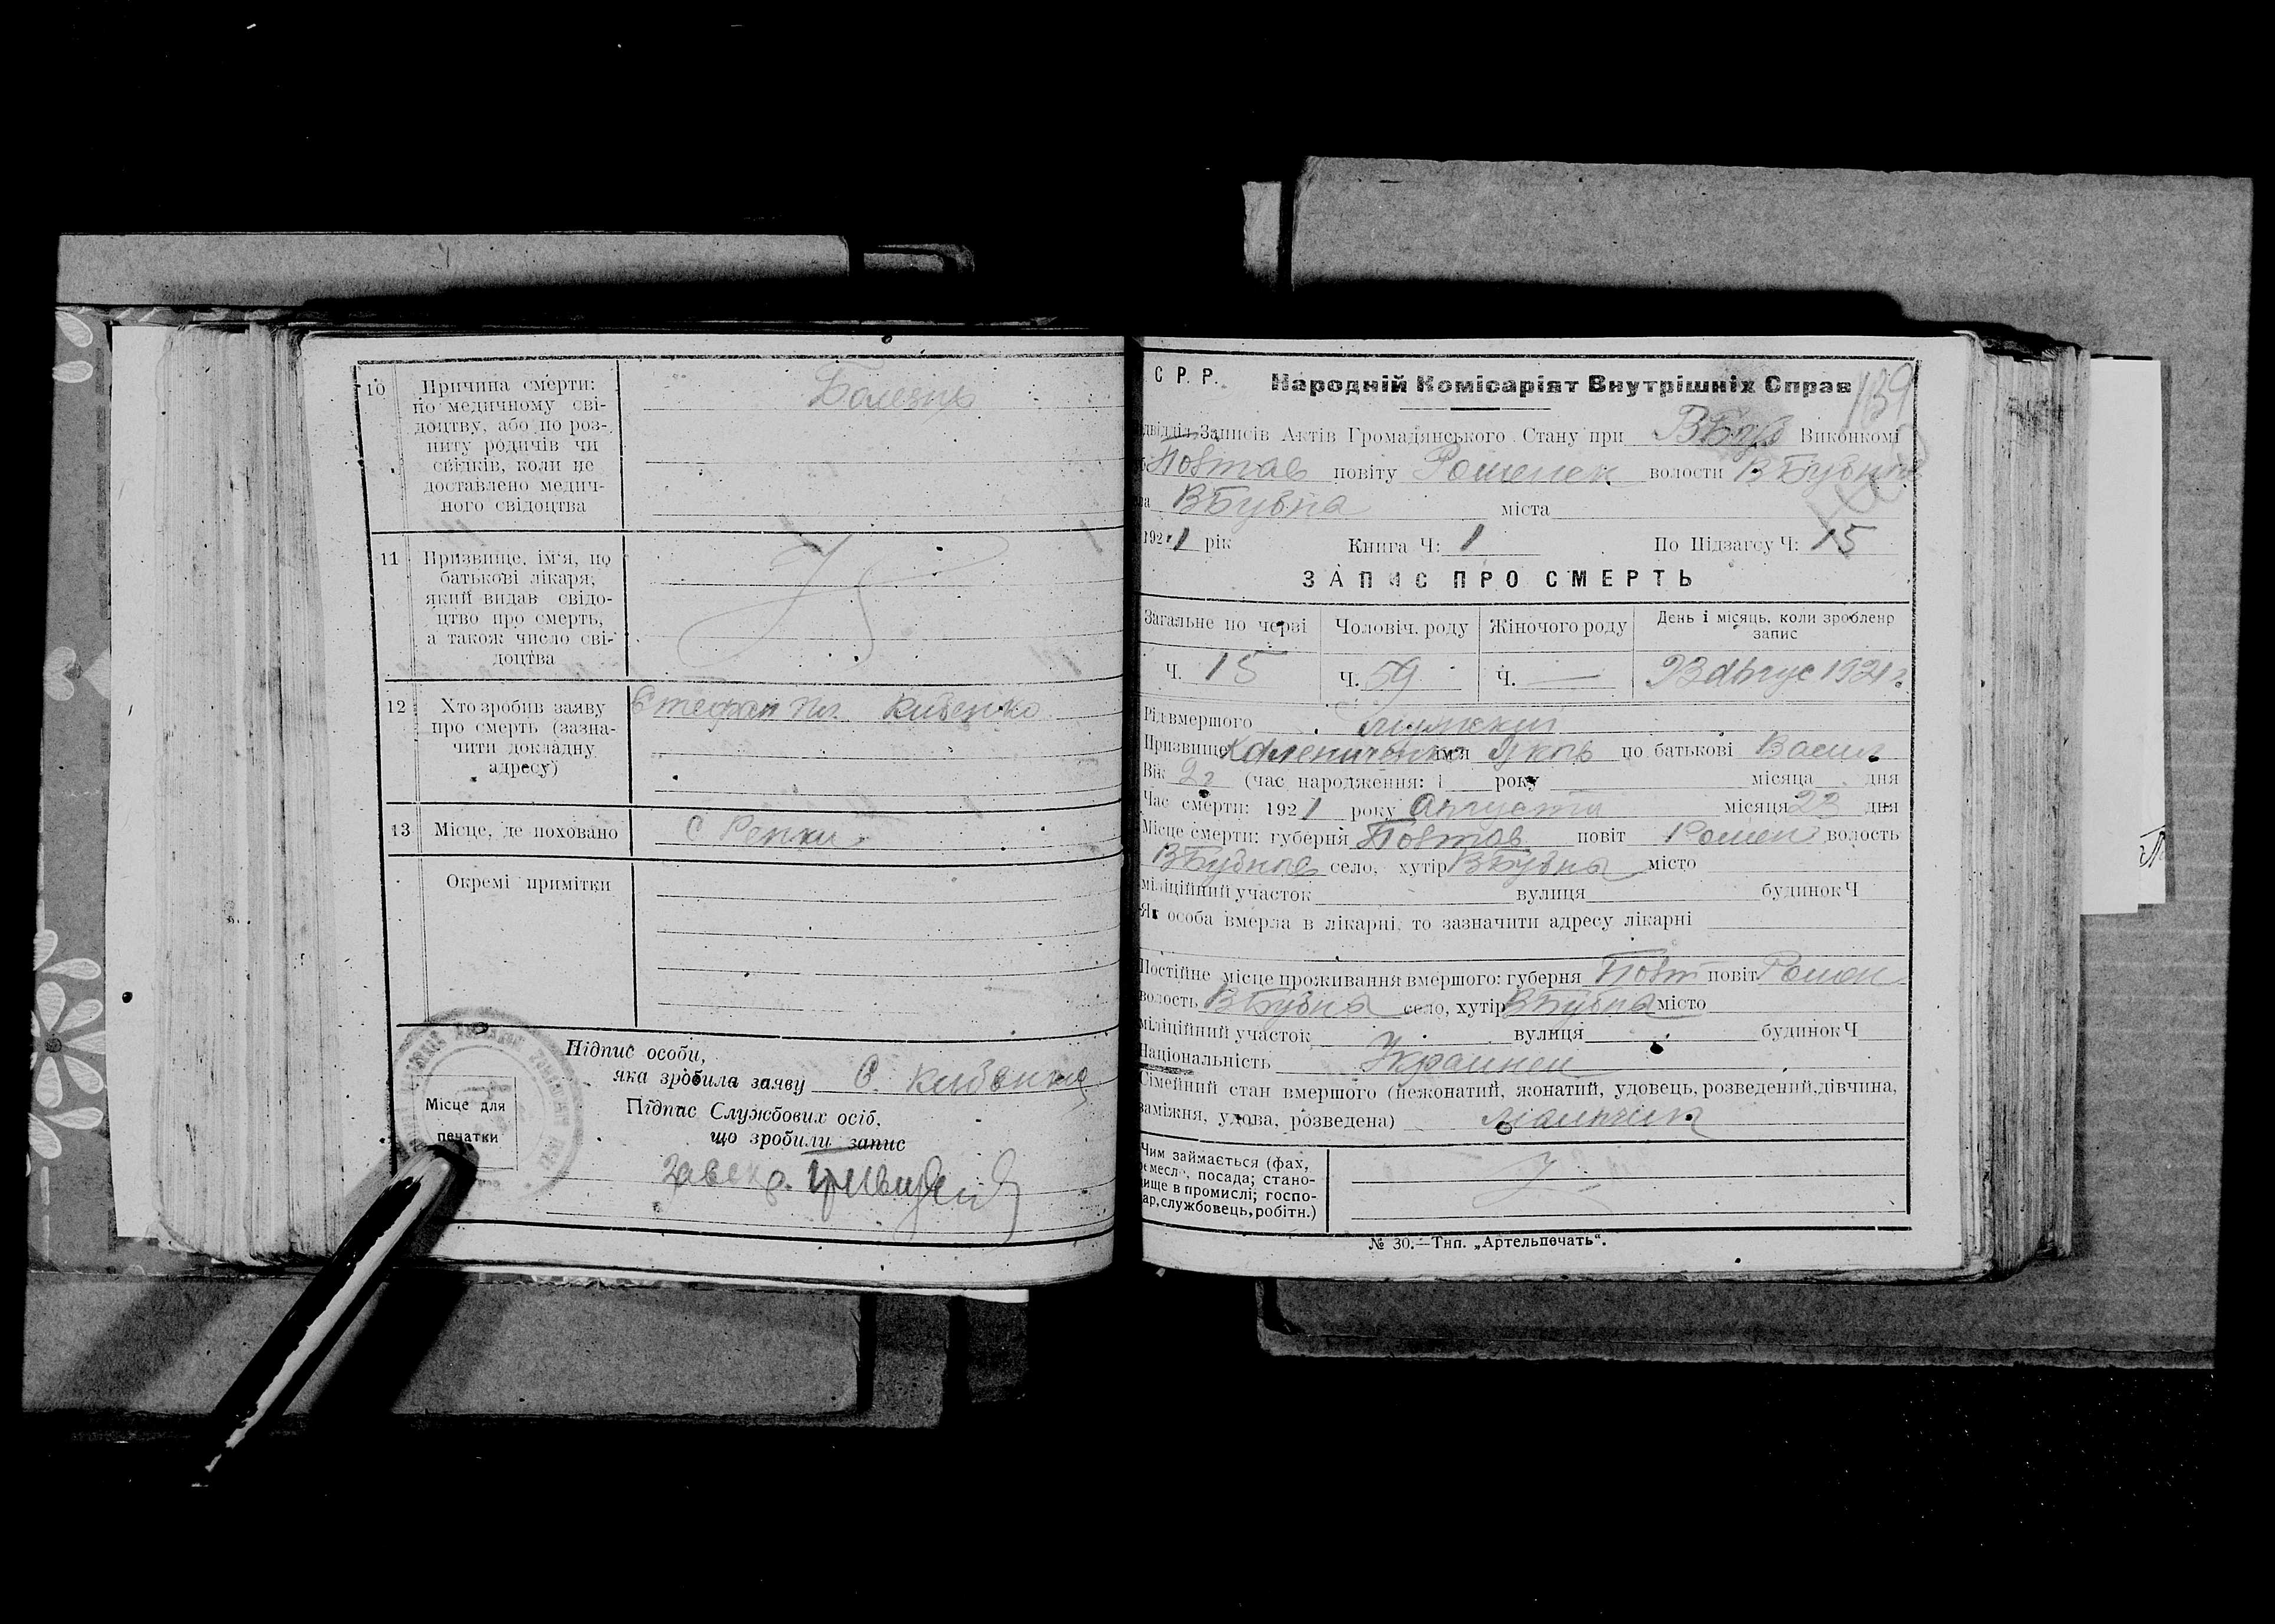 10 Причина смерти: Болезнь
по медичному сві-
доцтву, або по роз-
питу родичів чи
свідків, коли не
доставлено медич-
ного свідоцтва
11 Призвище, ім'я, по
батькові лікаря,
який видав свідо-
цтво про смерть,
а також число сві-
доцтва
12 Хто зробив заяву Стефан
про смерть (зазна-
чити докладну
адресу)
13 Місце, де поховано С Репки
Окремі примітки
Підпис особи,
яка зробила заяву С.
Місце для
печатки
Підпис Службових осіб,
що зробили запис
С Р. Р. Народній Комісаріят Внутрішніх Справ 139
Записів Актів Громадянського Стану при ВБуб Виконкомі
Полтав повіту Ромен волости
ВБубна міста
1921 рік Книга Ч: 1 По Підзагсу Ч: 15
ЗАПИС ПРО СМЕРТЬ
Загальне по черзі Чоловіч. роду Жіночого роду День і місяць, коли зроблено
запис
Ч. 15 Ч. 59 Ч. — 23 Авгус 1921 г.
Рід вмершого Мужский
Призвище імя Яков по батькові Васил
Вік 2 г (час народження: 1 року місяца дня
Час смерти: 1921 року Августа місяця 23 дня
Місце смерти: губерня Полтав повіт Ромен волость
ВБубна село, хутір ВБубна місто
міліційний участок вулиця будинок Ч
Як особа вмерла в лікарні, то зазначити адресу лікарні
Постійне місце проживання вмершого: губерня Полт повіт Ромен
волость ВБубна село, хутір ВБубна місто
міліційний участок вулиця будинок Ч
Національність Украинец
Сімейний стан вмершого (нежонатий, жонатий, удовець, розведений, дівчина,
заміжня, удова, розведена) Мальчик
Чим займається (фах,
ремесло, посада; стано-
вище в промислі; госпо-
дар, службовець, робітн.)
№ 30.—Тип. „Артельпечать".